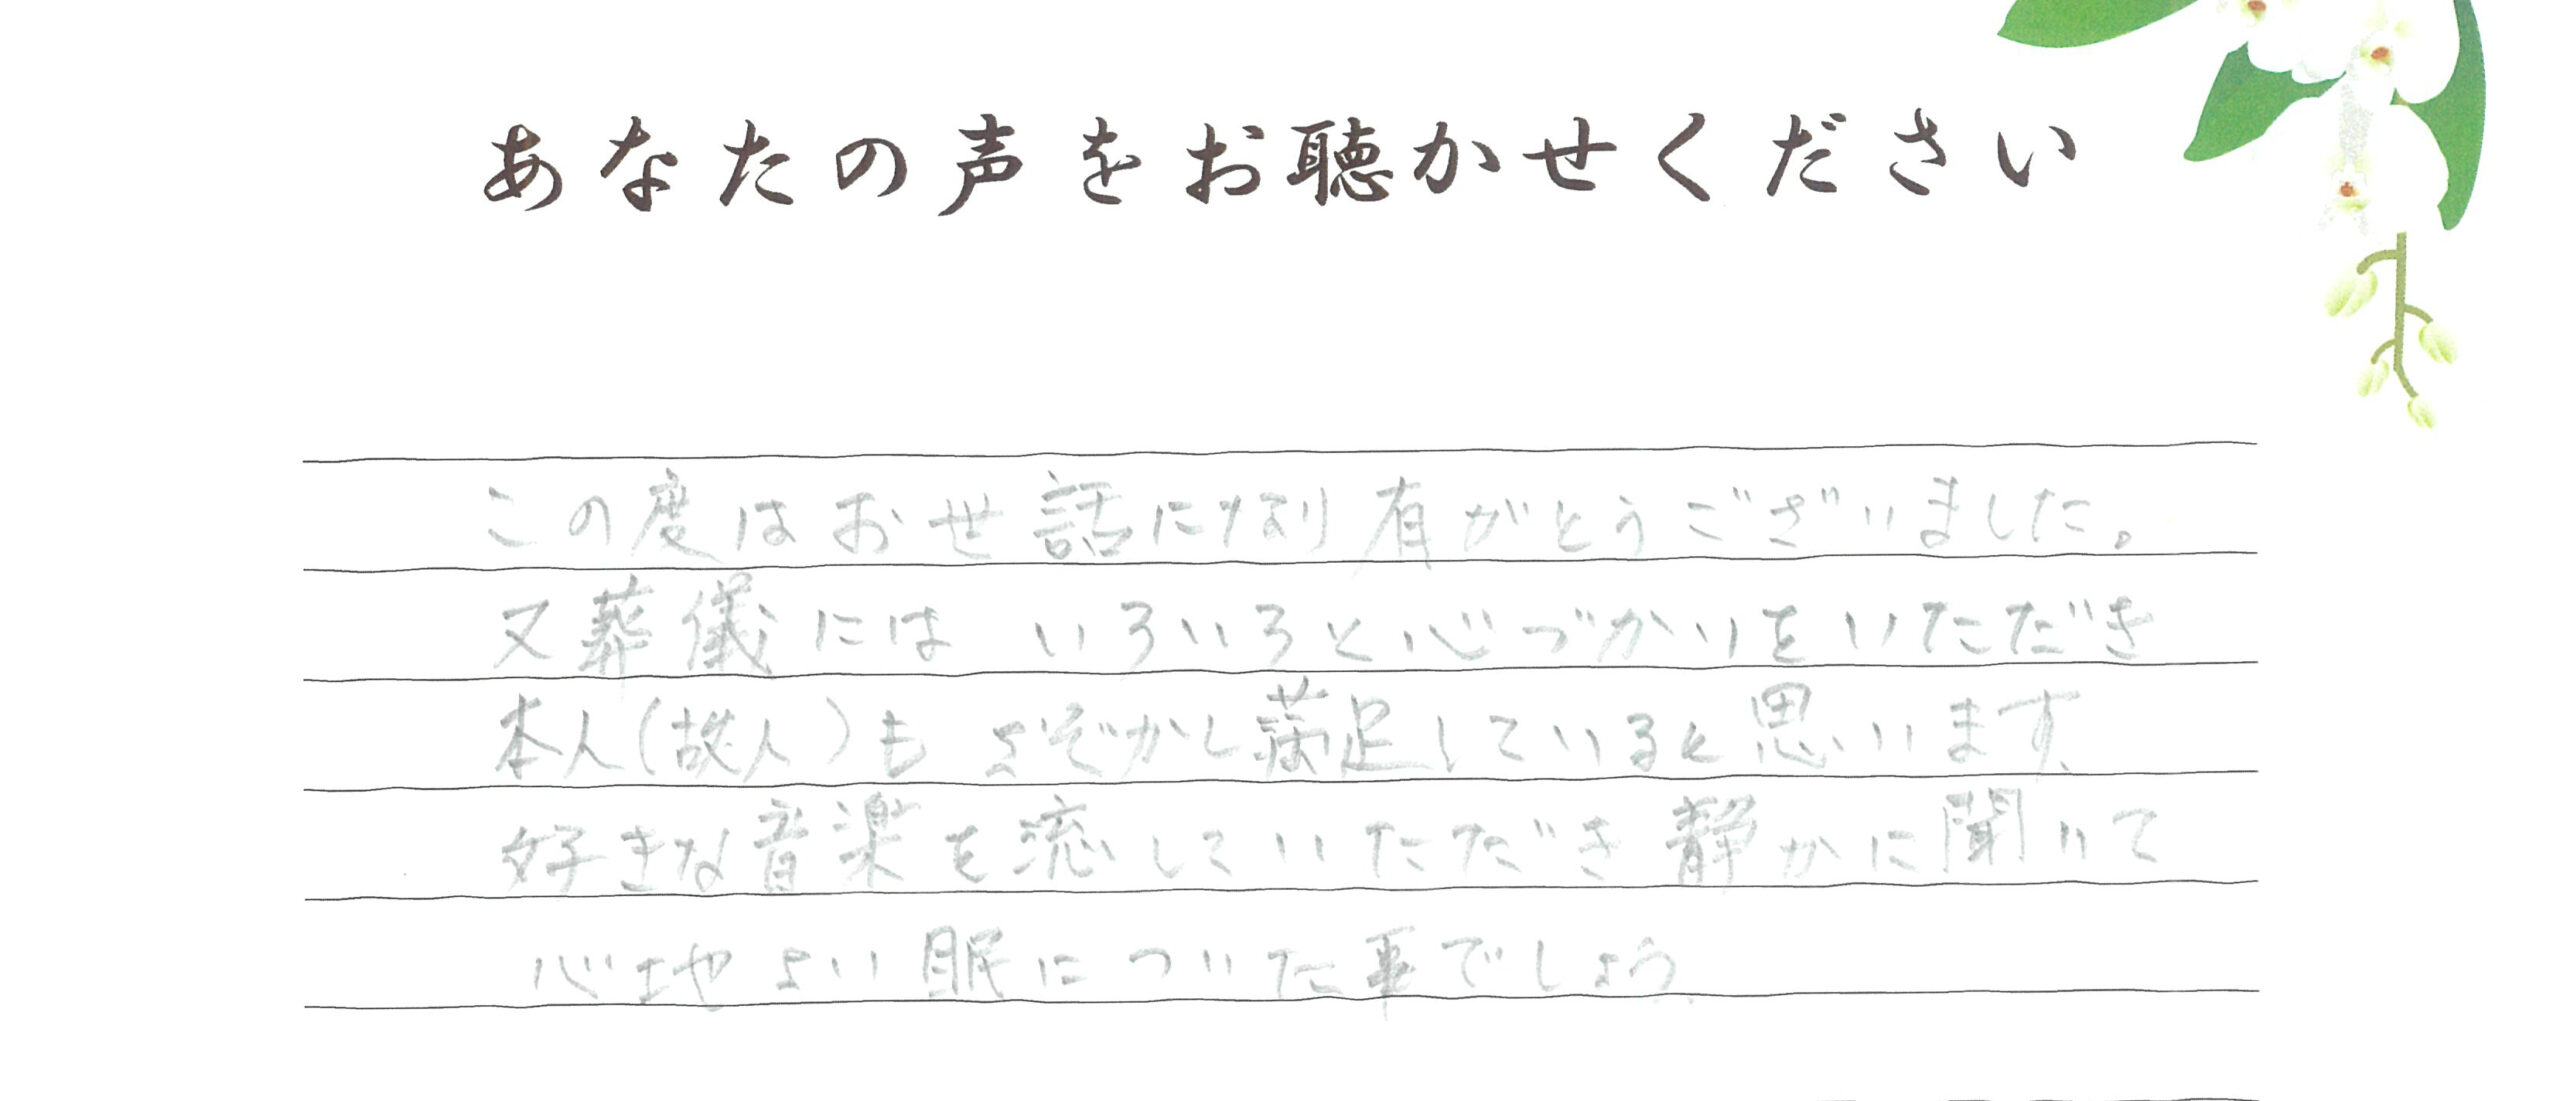 あなたの声をお聴かせください
この度はお世話になり有がとうございました。
又葬儀には いろいろと心づかいをいただき
本人(故人)も よぞかし満足していると思います
好きな音楽を流していただき静かに聞いて
心地よい眠についた事でしょう